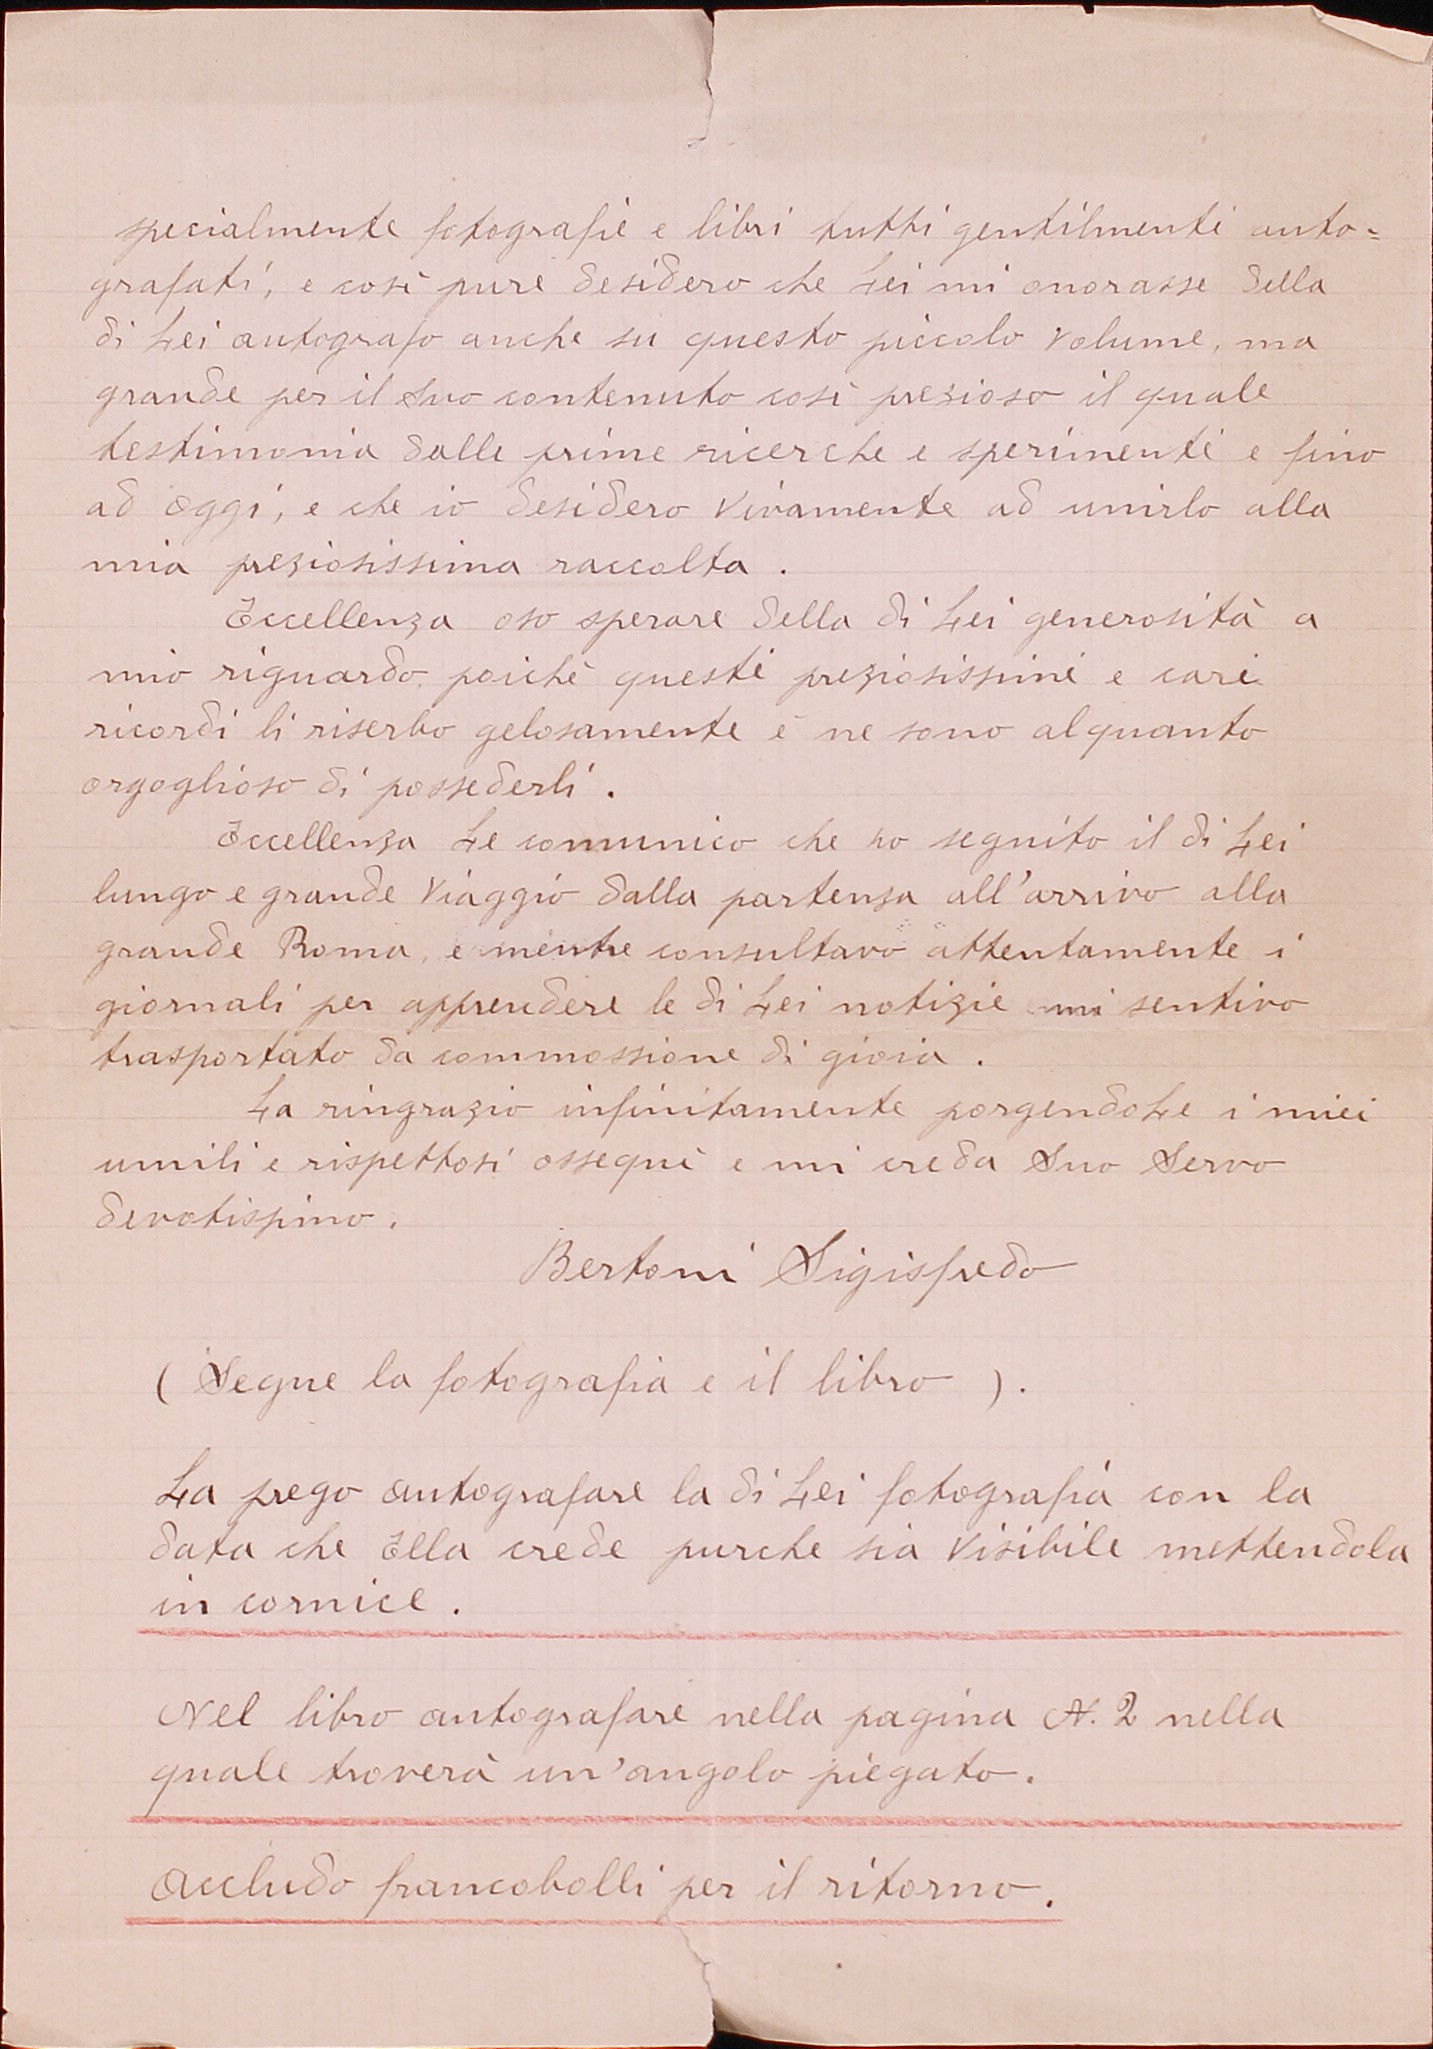 specialmente fotografie e libri tutti gentilmente auto=
grafati, e così pure desidero che Lei mi onorasse della
di Lei autografo anche su questo piccolo volume, ma
grande per il Suo contenuto così prezioso il quale
testimonia dalle prime ricerche e sperimenti e fino
ad oggi, e che io desidero vivamente ad unirlo alla
mia preziosissima raccolta.
Eccellenza oso sperare della di Lei generosità a
mio riguardo, poichè questi preziosissimi e cari
ricordi li riserbo gelosamente e ne sono alquanto
orgoglioso di possederli.
Eccellenza Le comunico che ho seguito il di Lei
lungo e grande viaggio dalla partenza all'arrivo alla
grande Roma, e mentre consultavo attentamente i
giornali per apprendere le di Lei notizie mi sentivo
trasportato da commossione di gioia.
La ringrazio infinitamente porgendoLe i miei
umili e rispettosi ossequi e mi creda Suo Servo
devotissimo.
Bertoni Sigisfredo
(Segue la fotografia e il libro).
La prego autografare la di Lei fotografia con la
data che Ella crede purche sia visibile mettendola
in cornice.
Nel libro autografare nella pagina N. 2 nella
quale troverà un'angolo piegato.
Accludo francobolli per il ritorno.